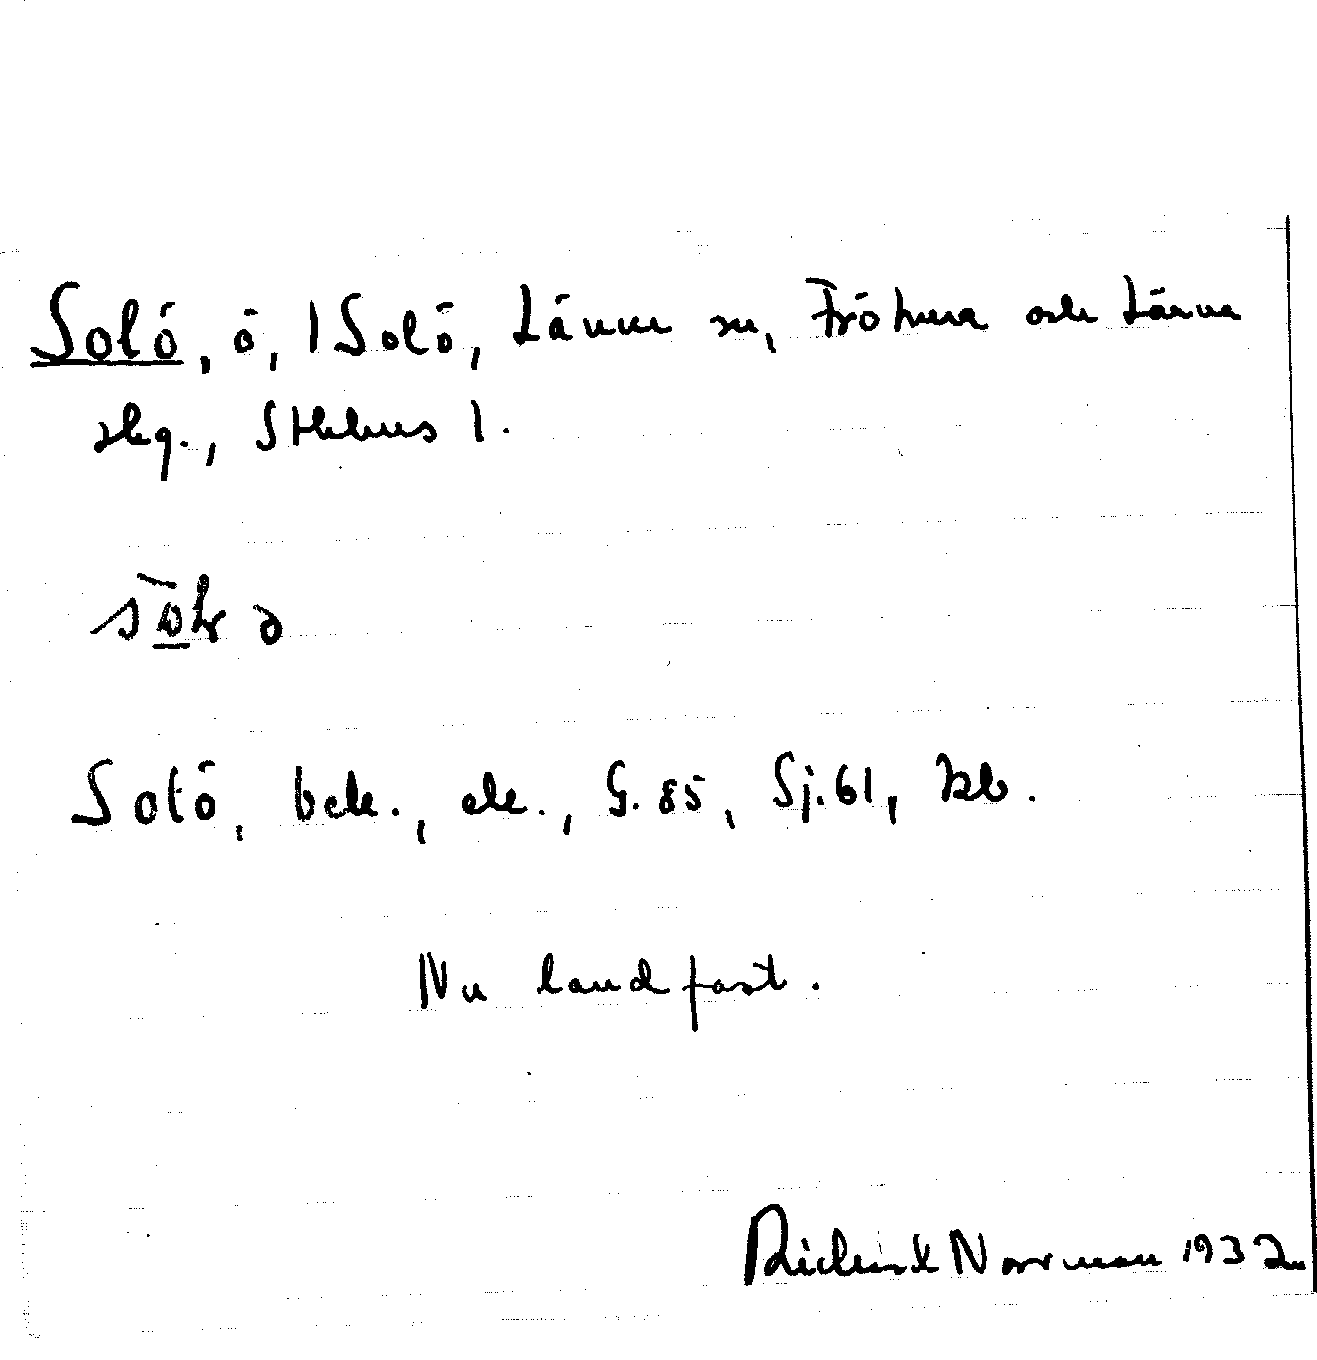 Solö, ö, l Solö, Länna sn, Frötuna och Länna
skg., Sthlms l.
Solö, bek., ek., G. 85, Sj. 61, kb.
Nu landfast.
Richard Norrman 1932